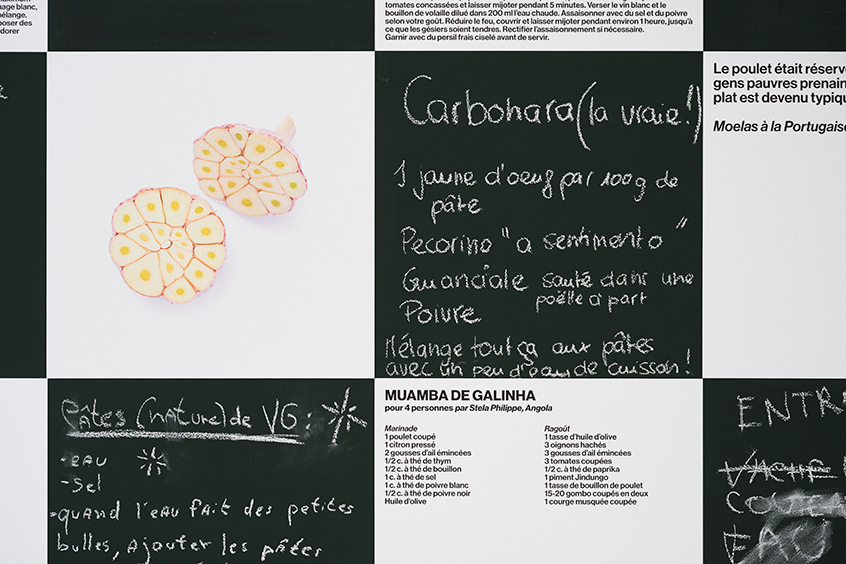 maximum
nage blanc,
mélange.
poser des
dorer
tomates concassées et laisser mijoter pendant 5 minutes. Verser le vin blanc et le
bouillon de volaille dilué dans 200 ml l'eau chaude. Assaisonner avec du sel et du poivre
selon votre goût. Réduire le feu, couvrir et laisser mijoter pendant environ 1 heure, jusqu'à
ce que les gésiers soient tendres. Rectifier l'assaisonnement si nécessaire.
Garnir avec du persil frais ciselé avant de servir.
Carbonara (la vraie!)
1 jaune d'oeuf par 100g de
pâte
Pecorino "a sentimento"
Guanciale sauté dans une
poëlle à part
Poivre
Mélange tout ça aux pâtes
avec un peu d'eau de cuisson!
Le poulet était réserv
gens pauvres prenain
plat est devenu typiqu
Moelas à la Portugaise
Pâtes (nature) de VG:
-eau
-sel
-quand l'eau fait des petites
bulles, ajouter les pâtes
MUAMBA DE GALINHA
pour 4 personnes par Stela Philippe, Angola
Marinade
1 poulet coupé
1 citron pressé
2 gousses d'ail émincées
1/2 c. à thé de thym
1/2 c. à thé de bouillon
1 c. à thé de sel
1 c. à thé de poivre blanc
1/2 c. à thé de poivre noir
Huile d'olive
Ragoût
1 tasse d'huile d'olive
3 oignons hachés
3 gousses d'ail émincées
3 tomates coupées
1/2 c. à thé de paprika
1 piment Jindungo
1 tasse de bouillon de poulet
15-20 gombo coupés en deux
1 courge musquée coupée
ENTR